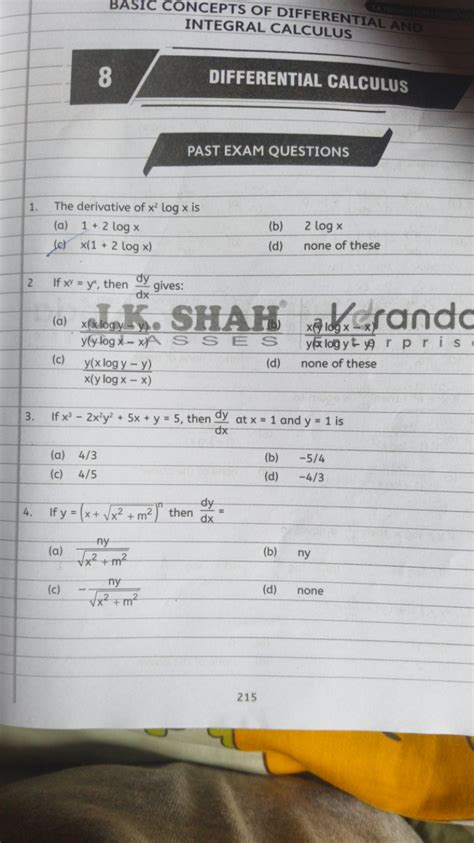 BASIC CONCEPTS OF DIFFERENTIAL AND
INTEGRAL CALCULUS
8 DIFFERENTIAL CALCULUS
PAST EXAM QUESTIONS
1. The derivative of x² log x is
(a) 1 + 2 log x (b) 2 log x
(c) x(1 + 2 log x) (d) none of these
2 If xʸ = yˣ, then dy/dx gives:
J.K. SHAH®
CLASSES
a Veranda
Enterprise
(a) x(x log y – y) / y(y log x – x) (b) x(y log x – x) / y(x log y – y)
(c) y(x log y – y) / x(y log x – x) (d) none of these
3. If x³ – 2x²y² + 5x + y = 5, then dy/dx at x = 1 and y = 1 is
(a) 4/3 (b) –5/4
(c) 4/5 (d) –4/3
4. If y = (x + √(x² + m²))ⁿ then dy/dx =
(a) ny / √(x² + m²) (b) ny
(c) – ny / √(x² + m²) (d) none
215